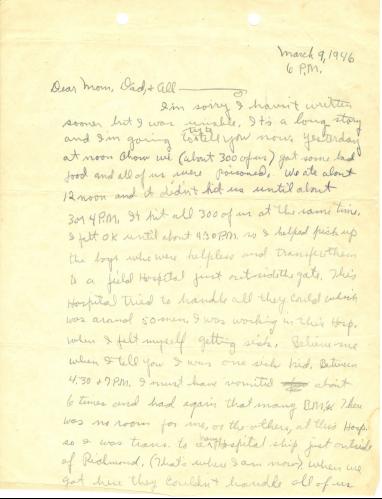 March 9, 1946
6 P.M.
Dear Mom, Dad, & All
I'm sorry I haven't written
sooner but I was unable. It's a long story
and I'm going to tell you now. Yesterday
at noon chow we (about 300 of us) got some bad
food and all of us were poisoned. We ate about
12 noon and it didn't hit us until about
3 or 4 P.M. It hit all 300 of us at the same time.
I felt OK until about 4:30 P.M. so I helped pick up
the boys who were helpless and transfer them
to a field Hospital just outside the gate. This
Hospital tried to handle all they could which
was around 50 men. I was working in this Hosp.
when I felt myself getting sick. Believe me
when I tell you I was one sick kid. Between
4:30 & 7 P.M. I must have vomited about
6 times and had again that many B.M.'s. There
was no room for me, or the others, at this Hosp.
so I was trans. to Hospital ship just outside
of Richmond. (That's where I am now) When we
got here they couldn't handle all of us